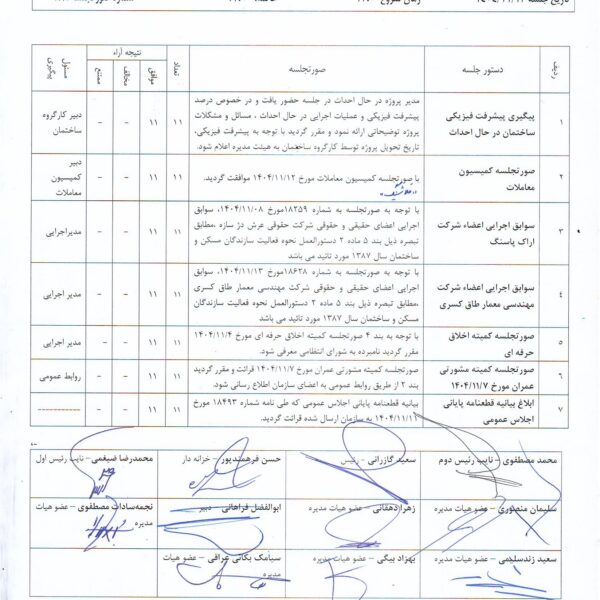 تاریخ جلسه
زمان شروع
ردیف
دستور جلسه
صورتجلسه
تعداد
نتیجه آراء
موافق
مخالف
ممتنع
مسئول پیگیری
۱
پیگیری پیشرفت فیزیکی
ساختمان در حال احداث
مدیر پروژه در حال احداث در جلسه حضور یافت و در خصوص درصد
پیشرفت فیزیکی و عملیات اجرایی در حال احداث ، مسائل و مشکلات
پروژه توضیحاتی ارائه نمود و مقرر گردید با توجه به پیشرفت فیزیکی،
تاریخ تحویل پروژه توسط کارگروه ساختمان به هیئت مدیره اعلام شود.
۱۱
۱۱
-
-
دبیر کارگروه
ساختمان
۲
صورتجلسه کمیسیون
معاملات
با صورتجلسه کمیسیون معاملات مورخ ۱۴۰۴/۱۱/۱۲ موافقت گردید.
۱۱
۱۱
-
-
دبیر
کمیسیون
معاملات
۳
سوابق اجرایی اعضاء شرکت
اراک پاسنگ
با توجه به صورتجلسه به شماره ۱۸۲۵۹مورخ ۱۴۰۴/۱۱/۰۸، سوابق
اجرایی اعضای حقیقی و حقوقی شرکت حقوقی عرش دژ سازه ،مطابق
تبصره ذیل بند ۵ ماده ۲ دستورالعمل نحوه فعالیت سازندگان مسکن و
ساختمان سال ۱۳۸۷ مورد تائید می باشد
۱۱
۱۱
-
-
مدیراجرایی
۴
سوابق اجرایی اعضاء شرکت
مهندسی معمار طاق کسری
با توجه به صورتجلسه به شماره ۱۸۶۲۸مورخ ۱۴۰۴/۱۱/۱۳، سوابق
اجرایی اعضای حقیقی و حقوقی شرکت مهندسی معمار طاق کسری
،مطابق تبصره ذیل بند ۵ ماده ۲ دستورالعمل نحوه فعالیت سازندگان
مسکن و ساختمان سال ۱۳۸۷ مورد تائید می باشد
۱۱
۱۱
-
-
مدیر اجرایی
۵
صورتجلسه کمیته اخلاق
حرفه ای
با توجه به بند ۴ صورتجلسه کمیته اخلاق حرفه ای مورخ ۱۴۰۴/۱۱/۴
مقرر گردید نامبرده به شورای انتظامی معرفی شود.
۱۱
۱۱
-
-
مدیر اجرایی
۶
صورتجلسه کمیته مشورتی
عمران مورخ ۱۴۰۴/۱۱/۷
صورتجلسه کمیته مشورتی عمران مورخ ۱۴۰۴/۱۱/۷ قرائت و مقرر گردید
بند ۲ از طریق روابط عمومی به اعضای سازمان اطلاع رسانی شود.
۱۱
۱۱
-
-
روابط عمومی
۷
ابلاغ بیانیه قطعنامه پایانی
اجلاس عمومی
بیانیه قطعنامه پایانی اجلاس عمومی که طی نامه شماره ۱۸۴۹۳ مورخ
۱۴۰۴/۱۱/۱۱ به سازمان ارسال شده قرائت گردید.
۱۱
۱۱
-
-
----------
محمد مصطفوی – نایب رئیس دوم
سعید گازرانی – رئیس
حسن فرهمندپور – خزانه دار
محمدرضا ضیغمی – نایب رئیس اول
سلیمان منصوری – عضو هیات مدیره
زهرا دهقانی – عضو هیات مدیره
ابوالفضل فراهانی – دبیر
نجمه‌سادات مصطفوی – عضو هیات
مدیره
سعید زندسلیمی – عضو هیات مدیره
بهزاد بیگی – عضو هیات مدیره
سیامک یگانی عراقی – عضو هیات
مدیره